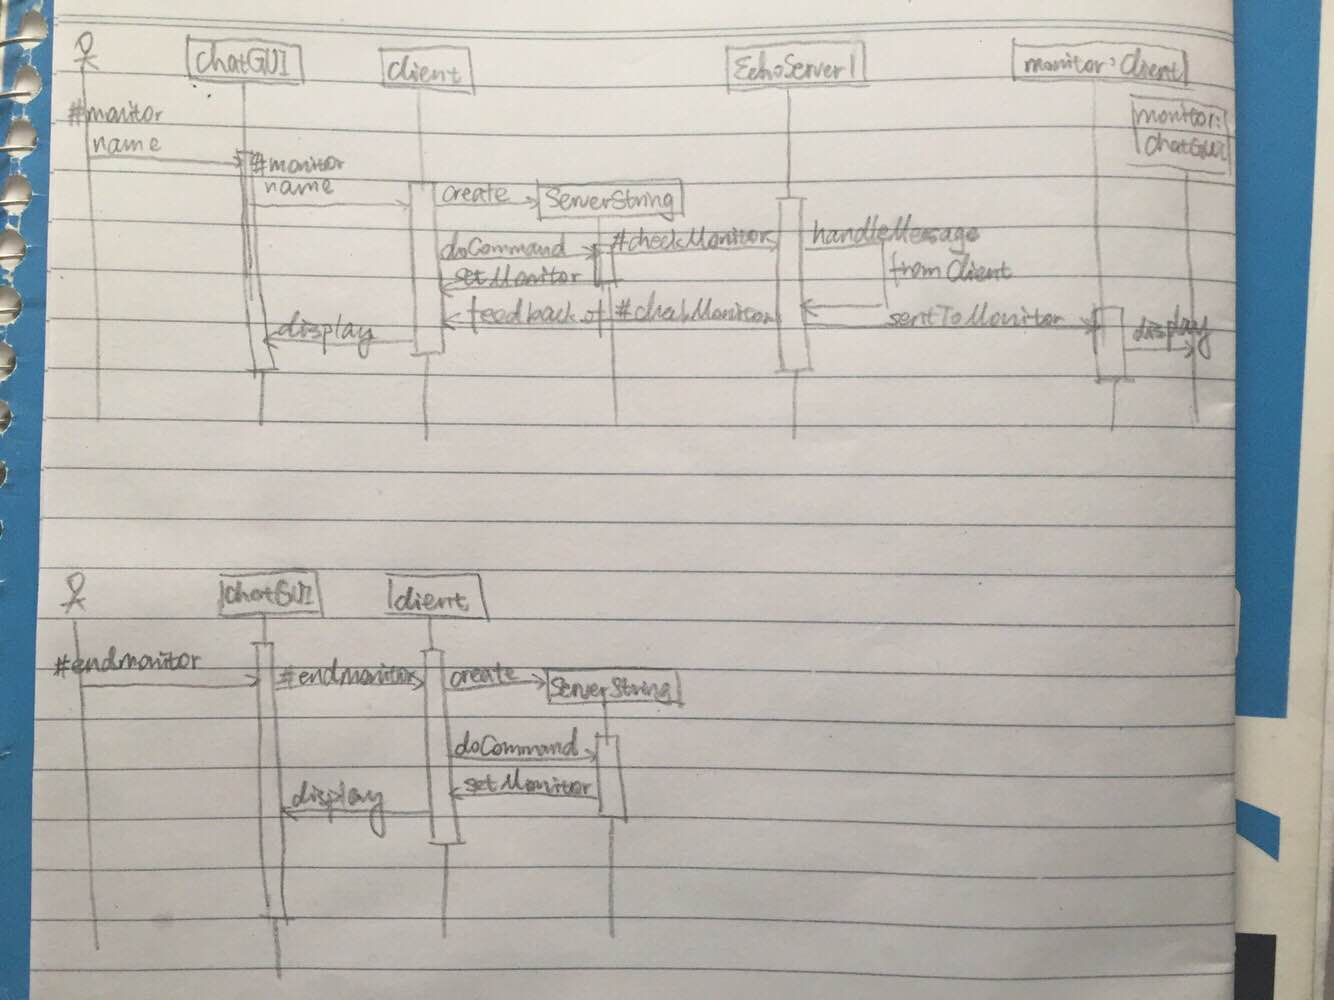 chatGUI
client
EchoServer1
monitor:Client
monitor:
chatGUI
#monitor
name
#monitor
name
create
ServerString
doCommand
#checkMonitor
handleMessage
fromClient
setMonitor
feedback of #checkMonitor
sentToMonitor
display
display
chatGUI
client
#endmonitor
#endmonitor
create
ServerString
doCommand
setMonitor
display